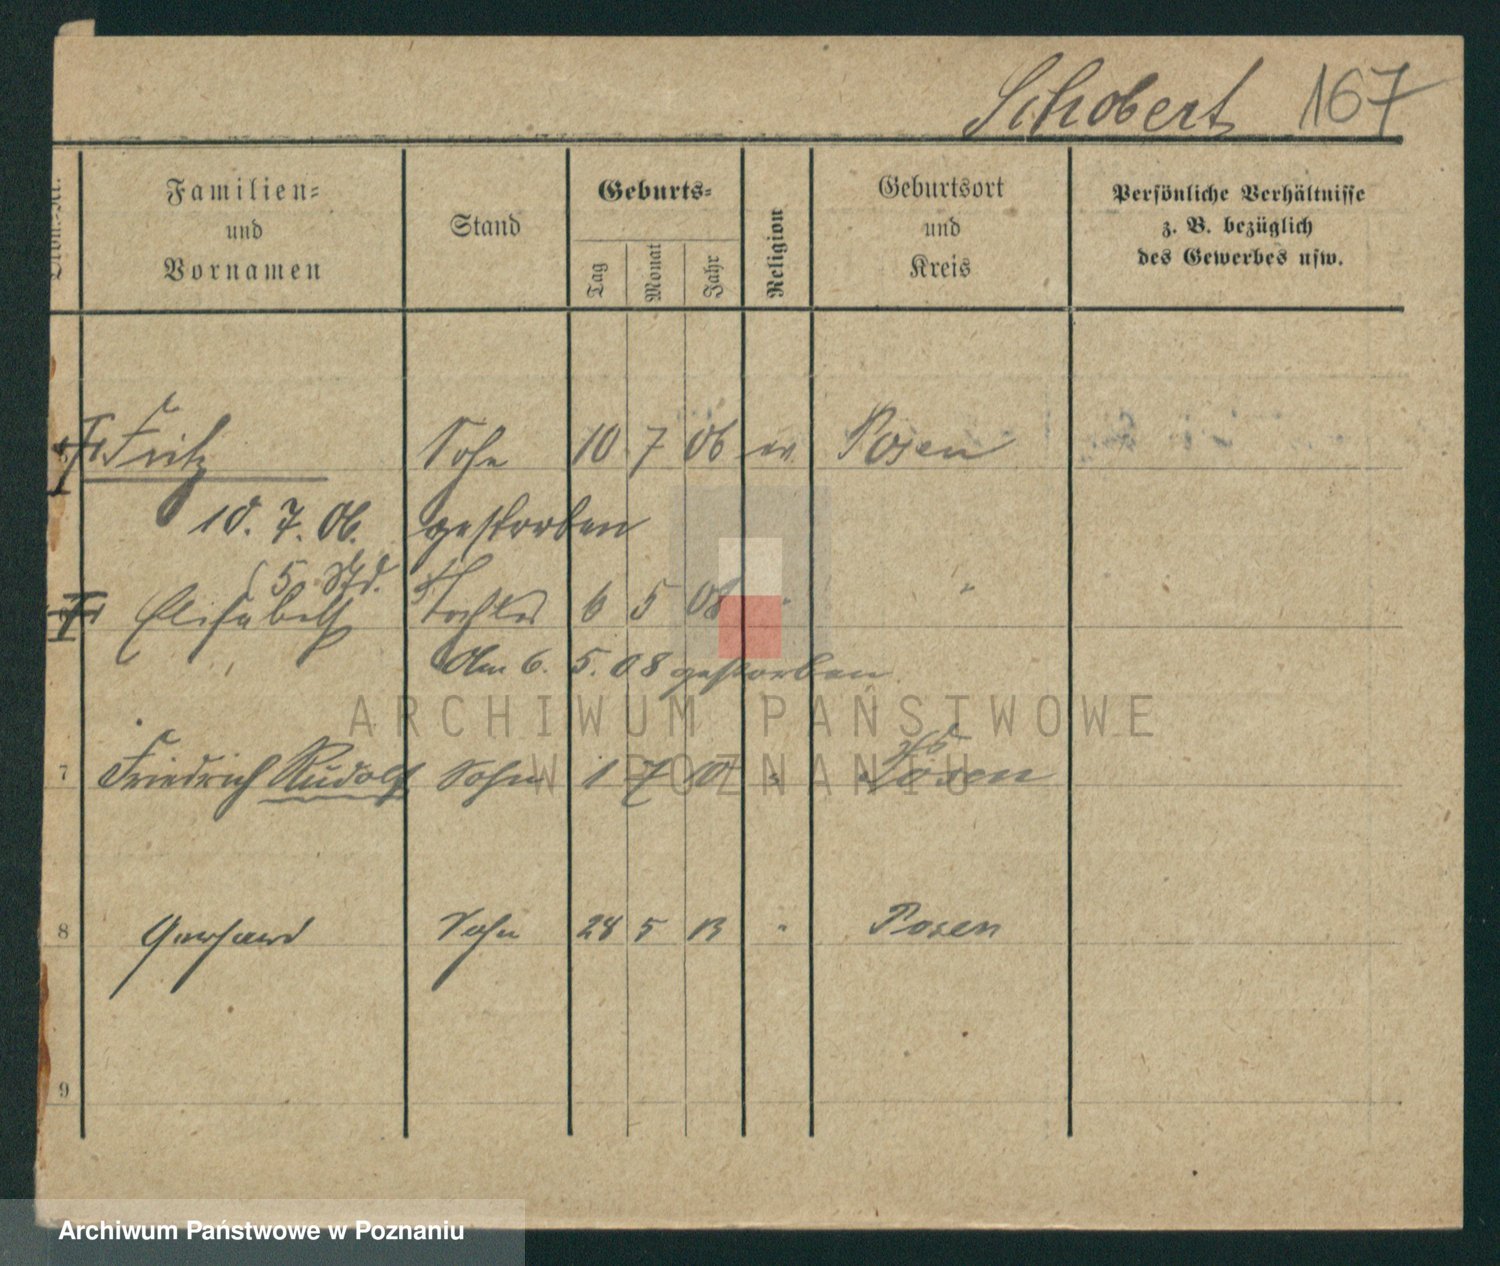 Schobert 167
Familien-
und
Vornamen
Stand
Geburts-
Tag
Monat
Jahr
Religion
Geburtsort
und
Kreis
Persönliche Verhältnisse
z. B. bezüglich
des Gewerbes usw.
Fritz Sohn 10 7 06 ev. Posen
10. 7. 06. gestorben
(5 Std.
Elisabeth Tochter 6 5 08 " "
Am 6. 5. 08 gestorben
7 Friedrich Rudolf Sohn 1 7 10 " Posen
8 Gerhard Sohn 28 5 13 " Posen
9
ARCHIWUM PAŃSTWOWE
W POZNANIU
Archiwum Państwowe w Poznaniu